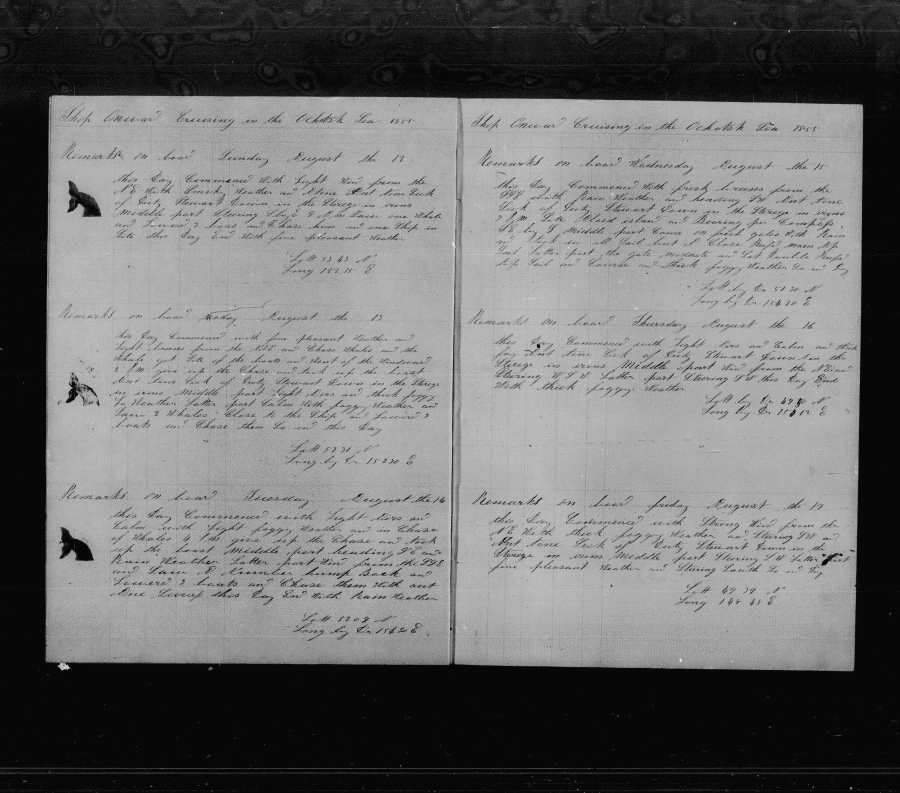 Ship Onward Cruising in the Ochotsk Sea 1855
Remarks on boar Sunday August the 12
this Day Commenced With Light Win from the
N E With Smoky Weather an
of Duty Stewart Down in the Sterege in irons
Middle part Stering S by E 2 P M Saw one Whale
an Lowerd 2 boats an Chase him an one Ship in
Site this Day End With fine pleasant Weather
Latt 53 43 N
Long 152 15 E
Remarks on boar Monday August the 13
this Day Commenced with fine pleasant Weather an
Light breeses from the an Chase Whales an the
Whale got Site of the boats an Went of the Windward
2 P M give up the Chase an took up the boats
Mat Sick of Duty Stewart Down in the Sterege
in irons Middle part Light Airs an thick foggy
Weather Latter part Calm With foggy Weather an
Saw 2 Whales Close to the Ship an Lowerd 2
boats an Chase them So in this Day
Latt 53 31 N
Long by Dr 152 30 E
Remarks on boar Tuesday August the 14
this Day Commenced with Light Airs an
Calm with Light foggy Weather an in Chase
of Whales 4 P M give up the Chase an took
up the boats Middle part heading S E an
Rain Weather Latter part Win from the
an Saw a Number hump Back an
Lowerd 2 boats an Chase them With out
this Day End With Rain Weather
Latt 52 09 N
Long by Dr 151 30 E
Ship Onward Cruising in the Ochotsk Sea 1855
Remarks on boar Wednesday August the 15
this Day Commenced With fresh breeses from the
With Rain Weather an heading
Sick of Duty Stewart Down in the Sterege in irons
2 P M Site islan an Bearing per Compass
S E by S Middle part Came on fresh gales With Rain
an took in all Sail but a Close Reefd main top
Sail Latter part the gale moderate an Set Double Reefd
top Sail an Course an thick foggy Weather So in Day
Latt by Dr 51 20 N
Long by Dr 151 20 E
Remarks on boar Thursday August the 16
this Day Commenced with Light Airs an Calm an thick
fog Sick of Duty Stewart Down in the
Sterege in irons Middle part Win from the
Stering W S W Latter part Stering S W this Day End
With thick foggy Weather
Latt by Dr N
Long by Dr E
Remarks on boar friday August the 17
this Day Commenced with Strong Win from the
N E With thick foggy Weather an Stering S W an
Sick of Duty Stewart Down in the
Sterege in irons Middle part Stering S W Latter part
fine pleasant Weather an Stering South So in Day
Latt 49 39 N
Long 148 45 E